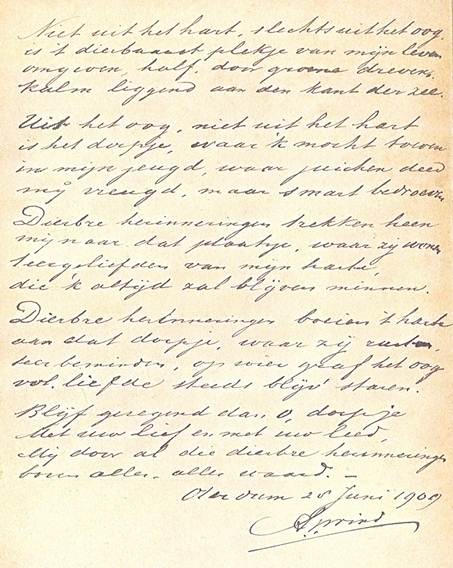 Niet uit het hart, slechts uit het oog
is 't dierbaarst plekje van mijn leven
omgeven, half, door groene dreven,
kalm liggend aan den kant der zee.
Uit het oog, niet uit het hart
is het dorpje, waar 'k mocht toeven
in mijn jeugd, waar juichen deed
mij vreugd, maar smart bedroeven
Dierbre herinneringen trekken heen
mij naar dat plaatsje, waar zij wonen
teergeliefden van mijn harte,
die 'k altijd zal blijven minnen.
Dierbre herinneringen boeien 't harte
aan dat dorpje, waar zij rusten,
teerbeminden, op wier graf het oog
vol liefde steeds blijv' staren.
Blijf gezegend dan, O, dorpje
Met uw lief en met uw leed,
Mij door al die dierbre herinneringen
boven alles, alles waard. —
Oterdum 25 Juni 1909